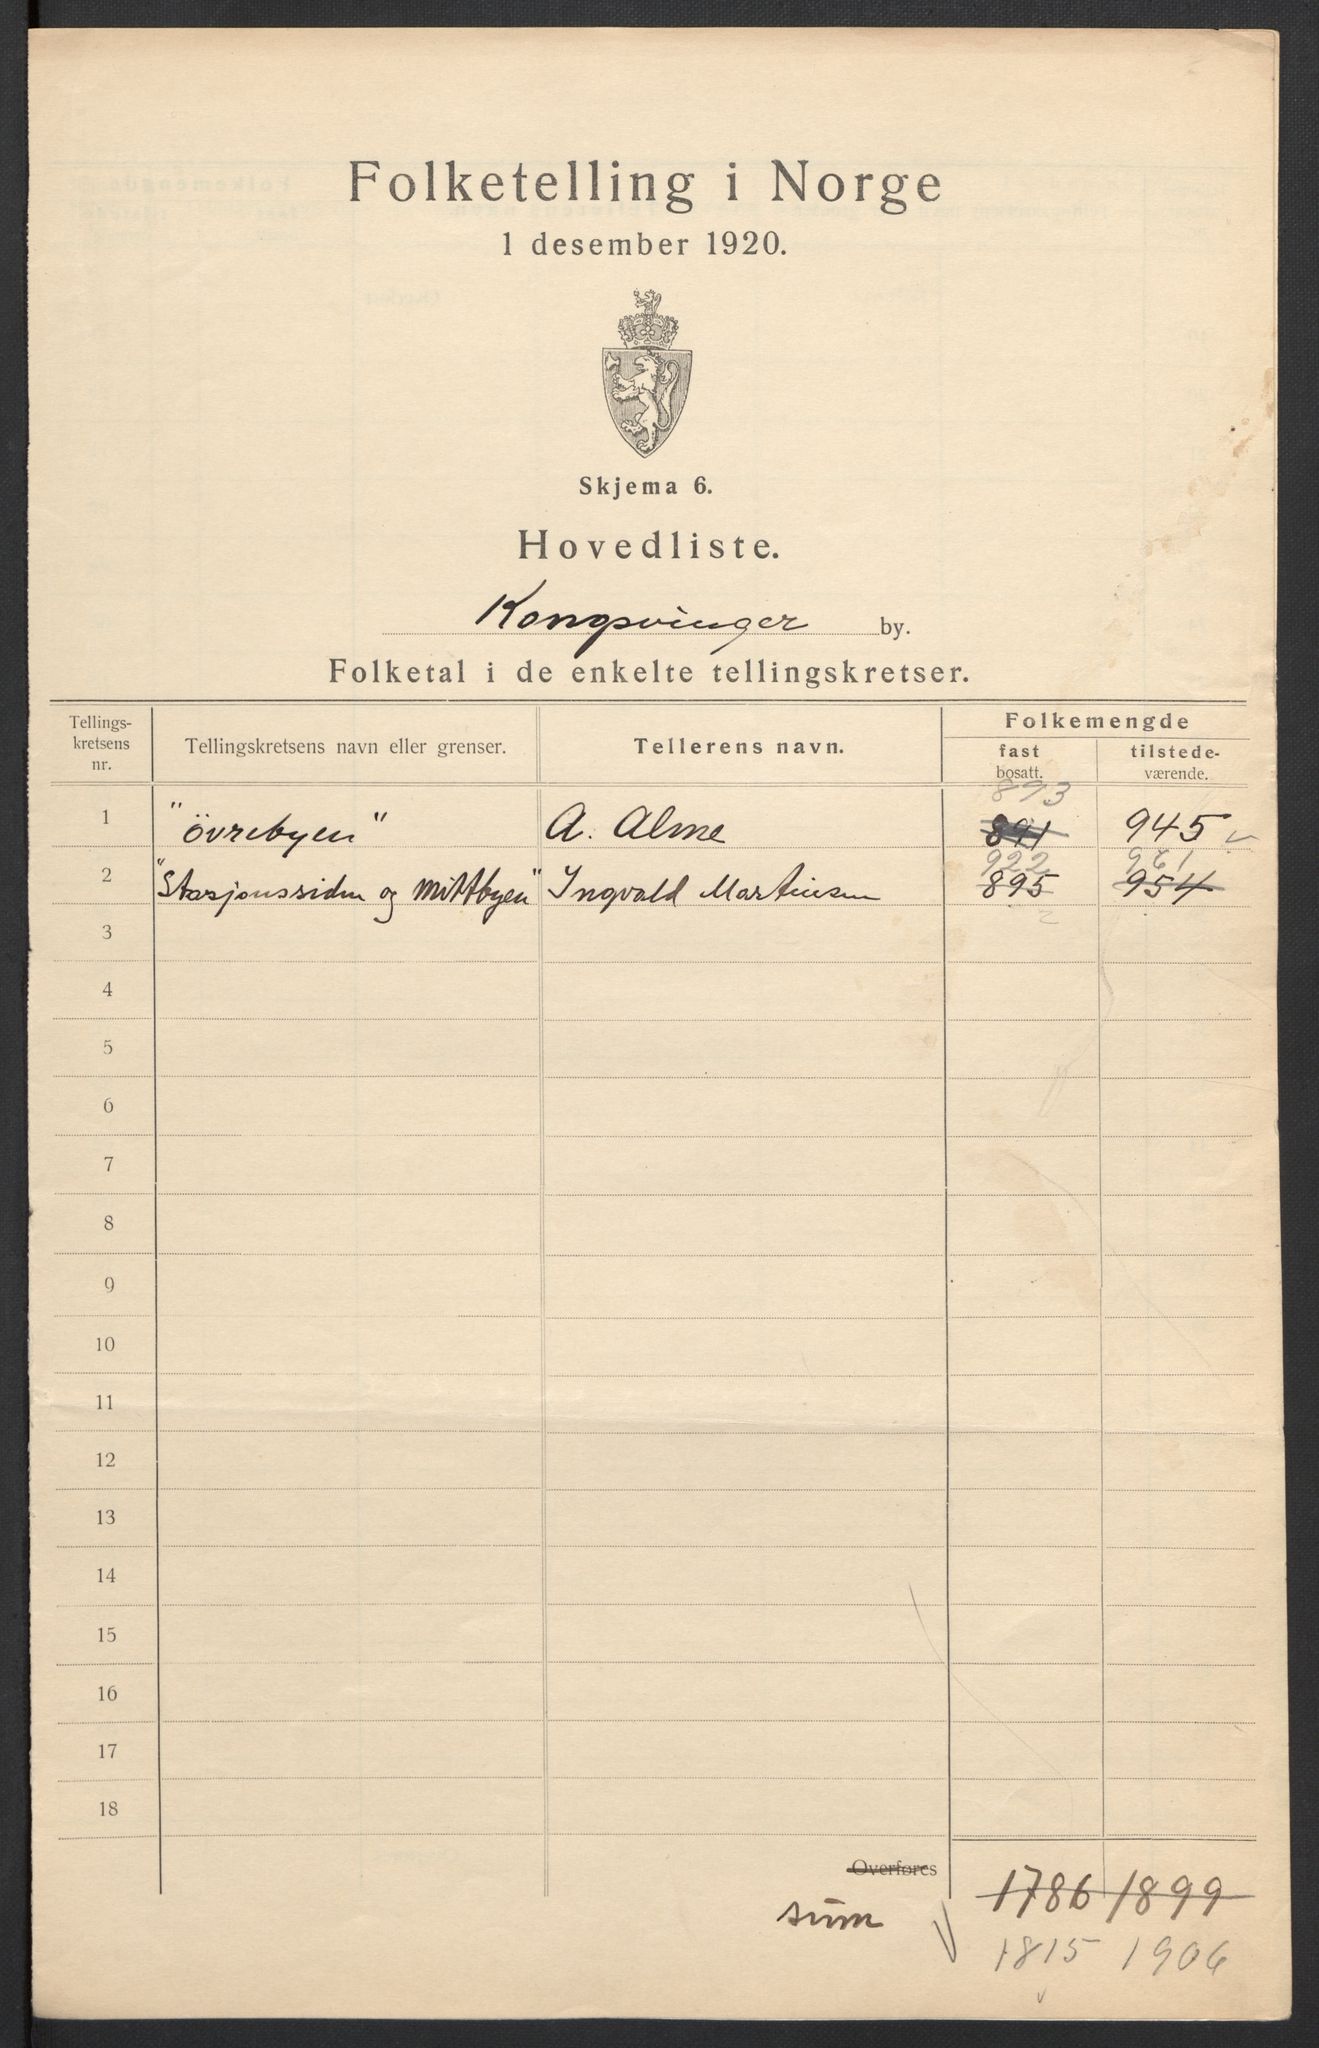 Folketelling i Norge
1 desember 1920.
Skjema 6.
Hovedliste.
Kongsvinger by.
Folketal i de enkelte tellingskretser.
Tellings-
kretsens
nr.
Tellingskretsens navn eller grenser.
Tellerens navn.
Folkemengde
fast
bosatt.
tilstede-
værende.
893
1 "övrebyen" A. Alme 891 945
922 961
2 "Stasjonssiden og Mittbyen" Ingvald Martinsen 895 954
3
4
5
6
7
8
9
10
11
12
13
14
15
16
17
18
Overføres
1786 1899
sum
1815 1906